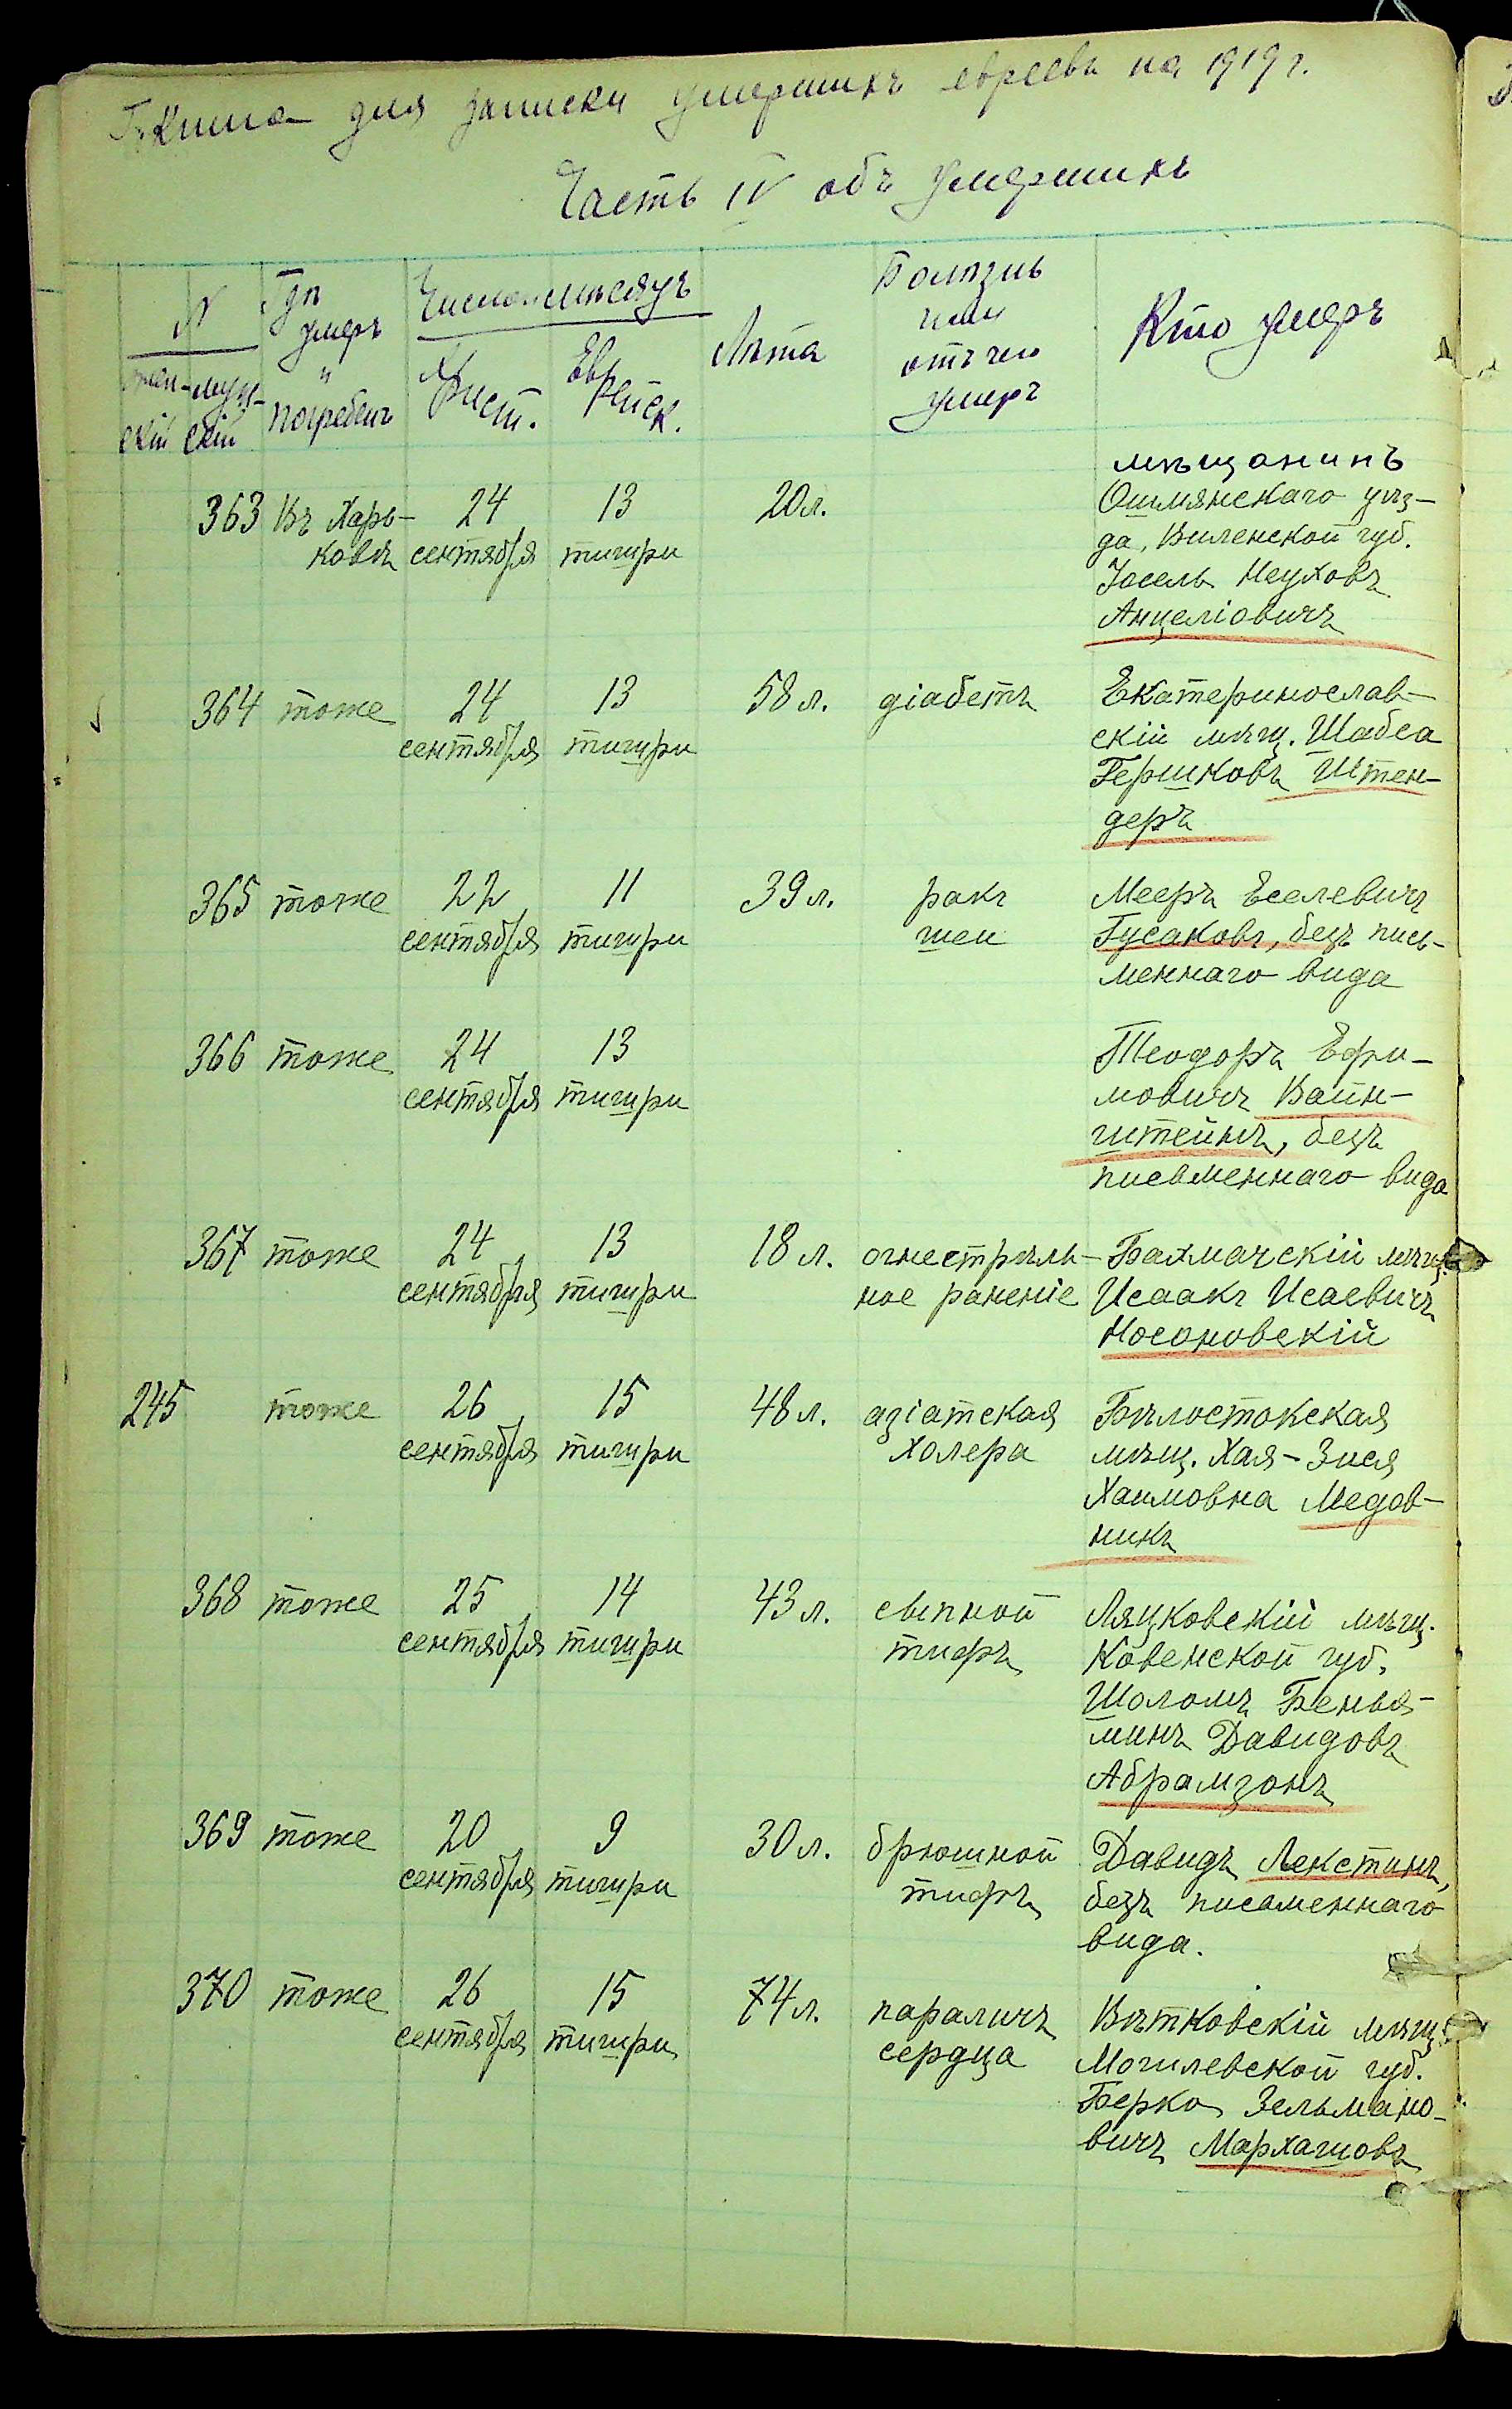 Книга для записки умершихъ евреевъ на 1919 г.
Часть IV объ умершихъ
№
женскій
мужскій
Гдѣ
умеръ
и
погребенъ
Число и мѣсяцъ
Христ.
Еврейск.
Лѣта
Болѣзнь
или
отъ чего
умеръ
Кто умеръ
363 Въ Харь-
ковѣ
24
сентября
13
тишри
20 л.
мѣщанинъ
Ошмянскаго уѣз-
да, Виленской губ.
Іосель Неуховъ
Анцеліовичъ
364 тоже
24
сентября
13
тишри
58 л.
діабетъ
Екатеринослав-
скій мѣщ. Шабса
Гершковъ Штен-
деръ
365 тоже
22
сентября
11
тишри
39 л.
ракъ
шеи
Мееръ Еселевичъ
Гусаковъ, безъ пись-
меннаго вида
366 тоже
24
сентября
13
тишри
Теодоръ Ефи-
мовичъ Вайн-
штейнъ, безъ
письменнаго вида
367 тоже
24
сентября
13
тишри
18 л.
огнестрѣль-
ное раненіе
Бахмачскій мѣщ.
Исаакъ Исаевичъ
Носоновскій
245 тоже
26
сентября
15
тишри
48 л.
азіатская
холера
Бѣлостокская
мѣщ. Хая-Зися
Хаимовна Медов-
никъ
368 тоже
25
сентября
14
тишри
43 л.
сыпной
тифъ
Ляцковскій мѣщ.
Ковенской губ.
Шоломъ Бенья-
минъ Давидовъ
Абрамзонъ
369 тоже
20
сентября
9
тишри
30 л.
брюшной
тифъ
Давидъ Лекстинъ,
безъ письменнаго
вида.
370 тоже
26
сентября
15
тишри
74 л.
параличъ
сердца
Вѣтковскій мѣщ.
Могилевской губ.
Берко Зельмано-
вичъ Мархашовъ